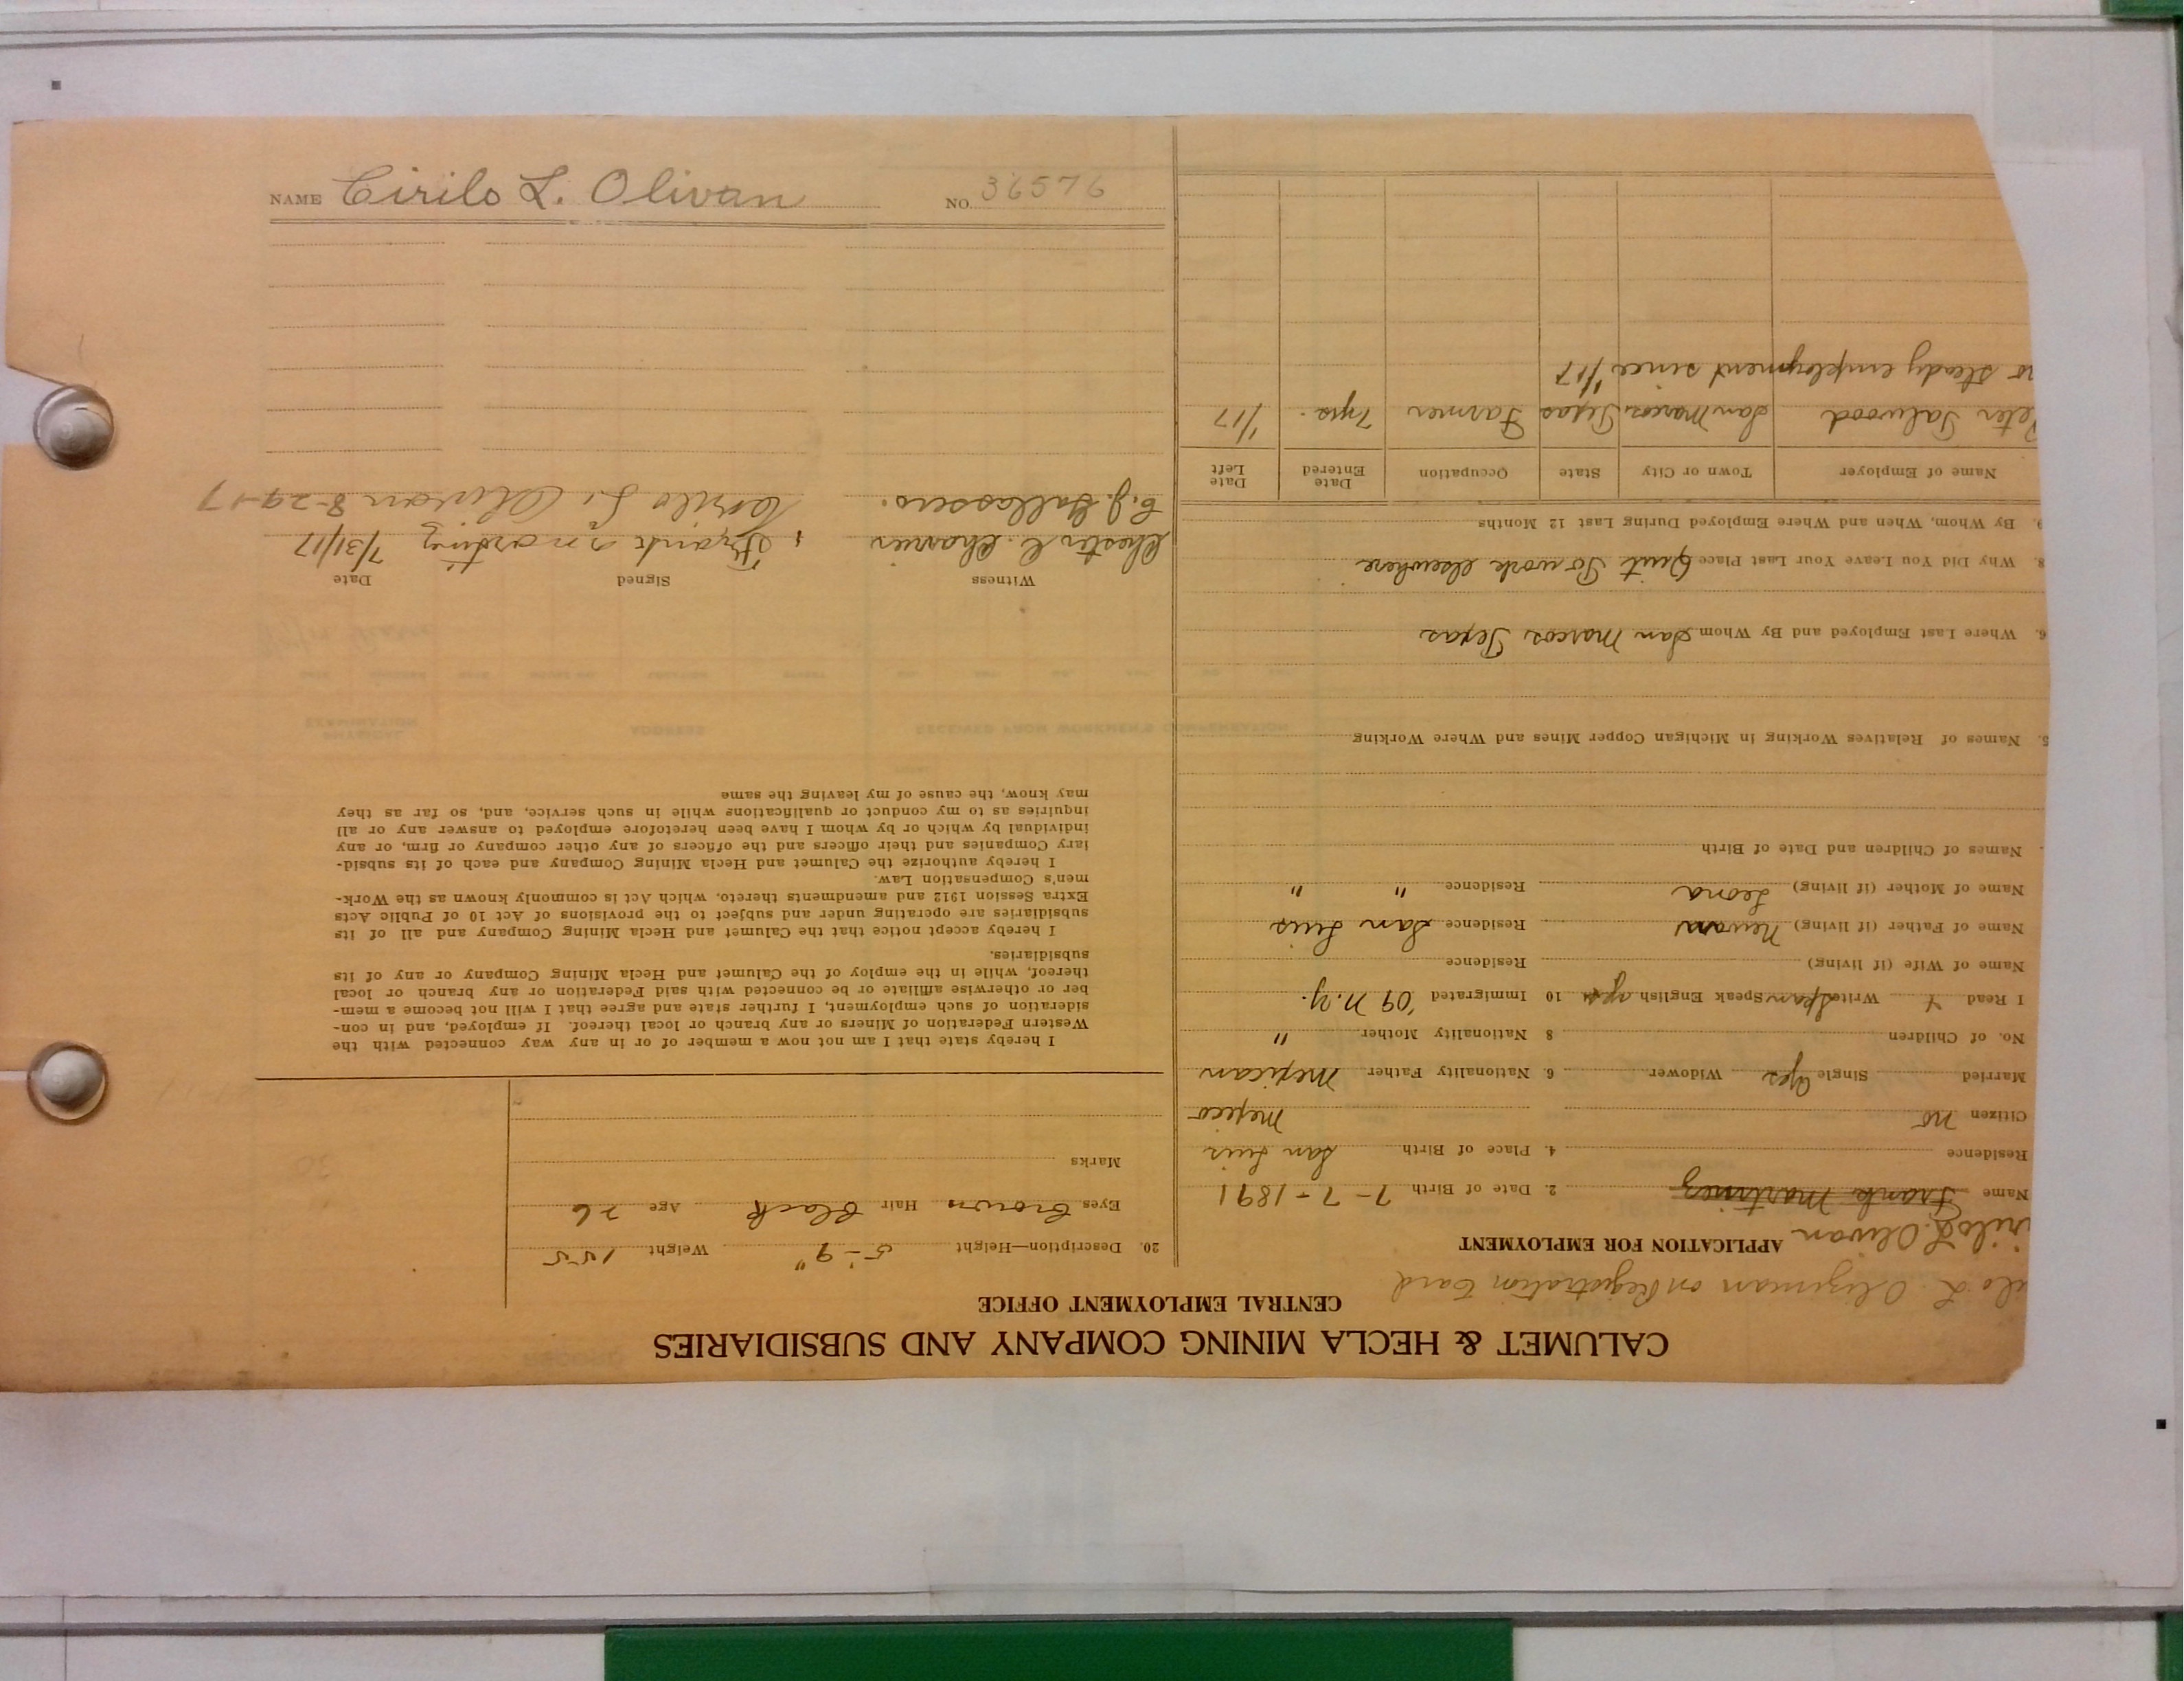 CALUMET & HECLA MINING COMPANY AND SUBSIDIARIES
CENTRAL EMPLOYMENT OFFICE
on Registration Card
L. Olivan APPLICATION FOR EMPLOYMENT
Name Frank Martinez 2. Date of Birth 7-7-1891
Residence 4. Place of Birth San Luis
Citizen no Mexico
Married Single yes Widower 6. Nationality Father Mexican
No. of Children 8 Nationality Mother "
I Read Write Speak English 10 Immigrated '09 N.Y.
Name of Wife (if living) Residence
Name of Father (if living) Residence San Luis
Name of Mother (if living) Leona Residence " "
Names of Children and Date of Birth
5. Names of Relatives Working in Michigan Copper Mines and Where Working
6. Where Last Employed and By Whom San Marcos Texas
8. Why Did You Leave Your Last Place Quit To work elsewhere
9. By Whom, When and Where Employed During Last 12 Months
Name of Employer Town or City State Occupation Date Entered Date Left
San Marcos Texas Farmer 7 yrs. 1/17
no steady employment since 1/17
20. Description—Height 5'-9" Weight 155
Eyes Brown Hair Black Age 26
Marks
I hereby state that I am not now a member of or in any way connected with the
Western Federation of Miners or any branch or local thereof. If employed, and in con-
sideration of such employment, I further state and agree that I will not become a mem-
ber or otherwise affiliate or be connected with said Federation or any branch or local
thereof, while in the employ of the Calumet and Hecla Mining Company or any of its
subsidiaries.
I hereby accept notice that the Calumet and Hecla Mining Company and all of its
subsidiaries are operating under and subject to the provisions of Act 10 of Public Acts
Extra Session 1912 and amendments thereto, which Act is commonly known as the Work-
men's Compensation Law.
I hereby authorize the Calumet and Hecla Mining Company and each of its subsid-
iary Companies and their officers and the officers of any other company or firm, or any
individual by which or by whom I have been heretofore employed to answer any or all
inquiries as to my conduct or qualifications while in such service, and, so far as they
may know, the cause of my leaving the same
Witness Signed Date
Chester C. Frank 7/31/17
C. J. Cirilo L. Olivan 8-29-17
NAME Cirilo L. Olivan NO. 36576